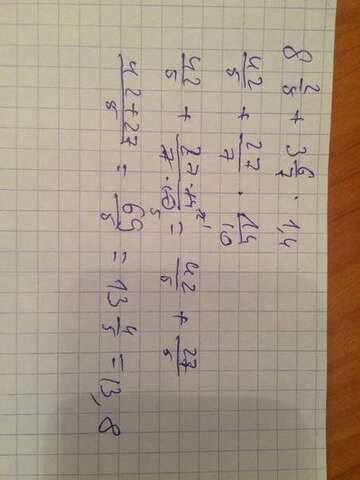 8 2/5 + 3 6/7 · 1,4
42/5 + 27/7 · 14/10
42/5 + 27·14/7·10 = 42/5 + 27/5
42+27/5 = 69/5 = 13 4/5 = 13,8